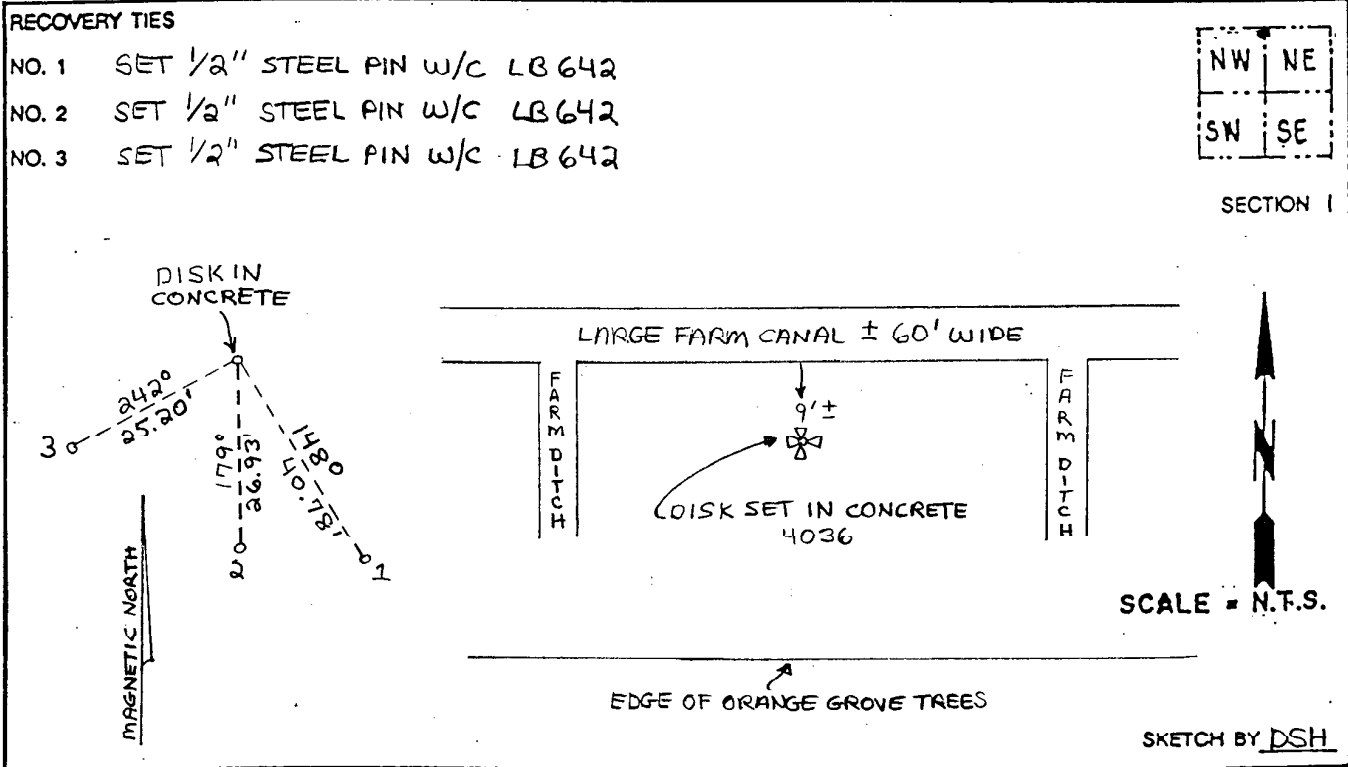 RECOVERY TIES
NO. 1 SET 1/2" STEEL PIN W/C LB 642
NO. 2 SET 1/2" STEEL PIN W/C LB 642
NO. 3 SET 1/2" STEEL PIN W/C LB 642
NW NE
SW SE
SECTION 1
DISK IN
CONCRETE
242°
25.20'
3
179°
26.93'
2
148°
40.78'
1
MAGNETIC NORTH
LARGE FARM CANAL ± 60' WIDE
FARM DITCH
9' ±
FARM DITCH
DISK SET IN CONCRETE
4036
N
SCALE = N.T.S.
EDGE OF ORANGE GROVE TREES
SKETCH BY DSH